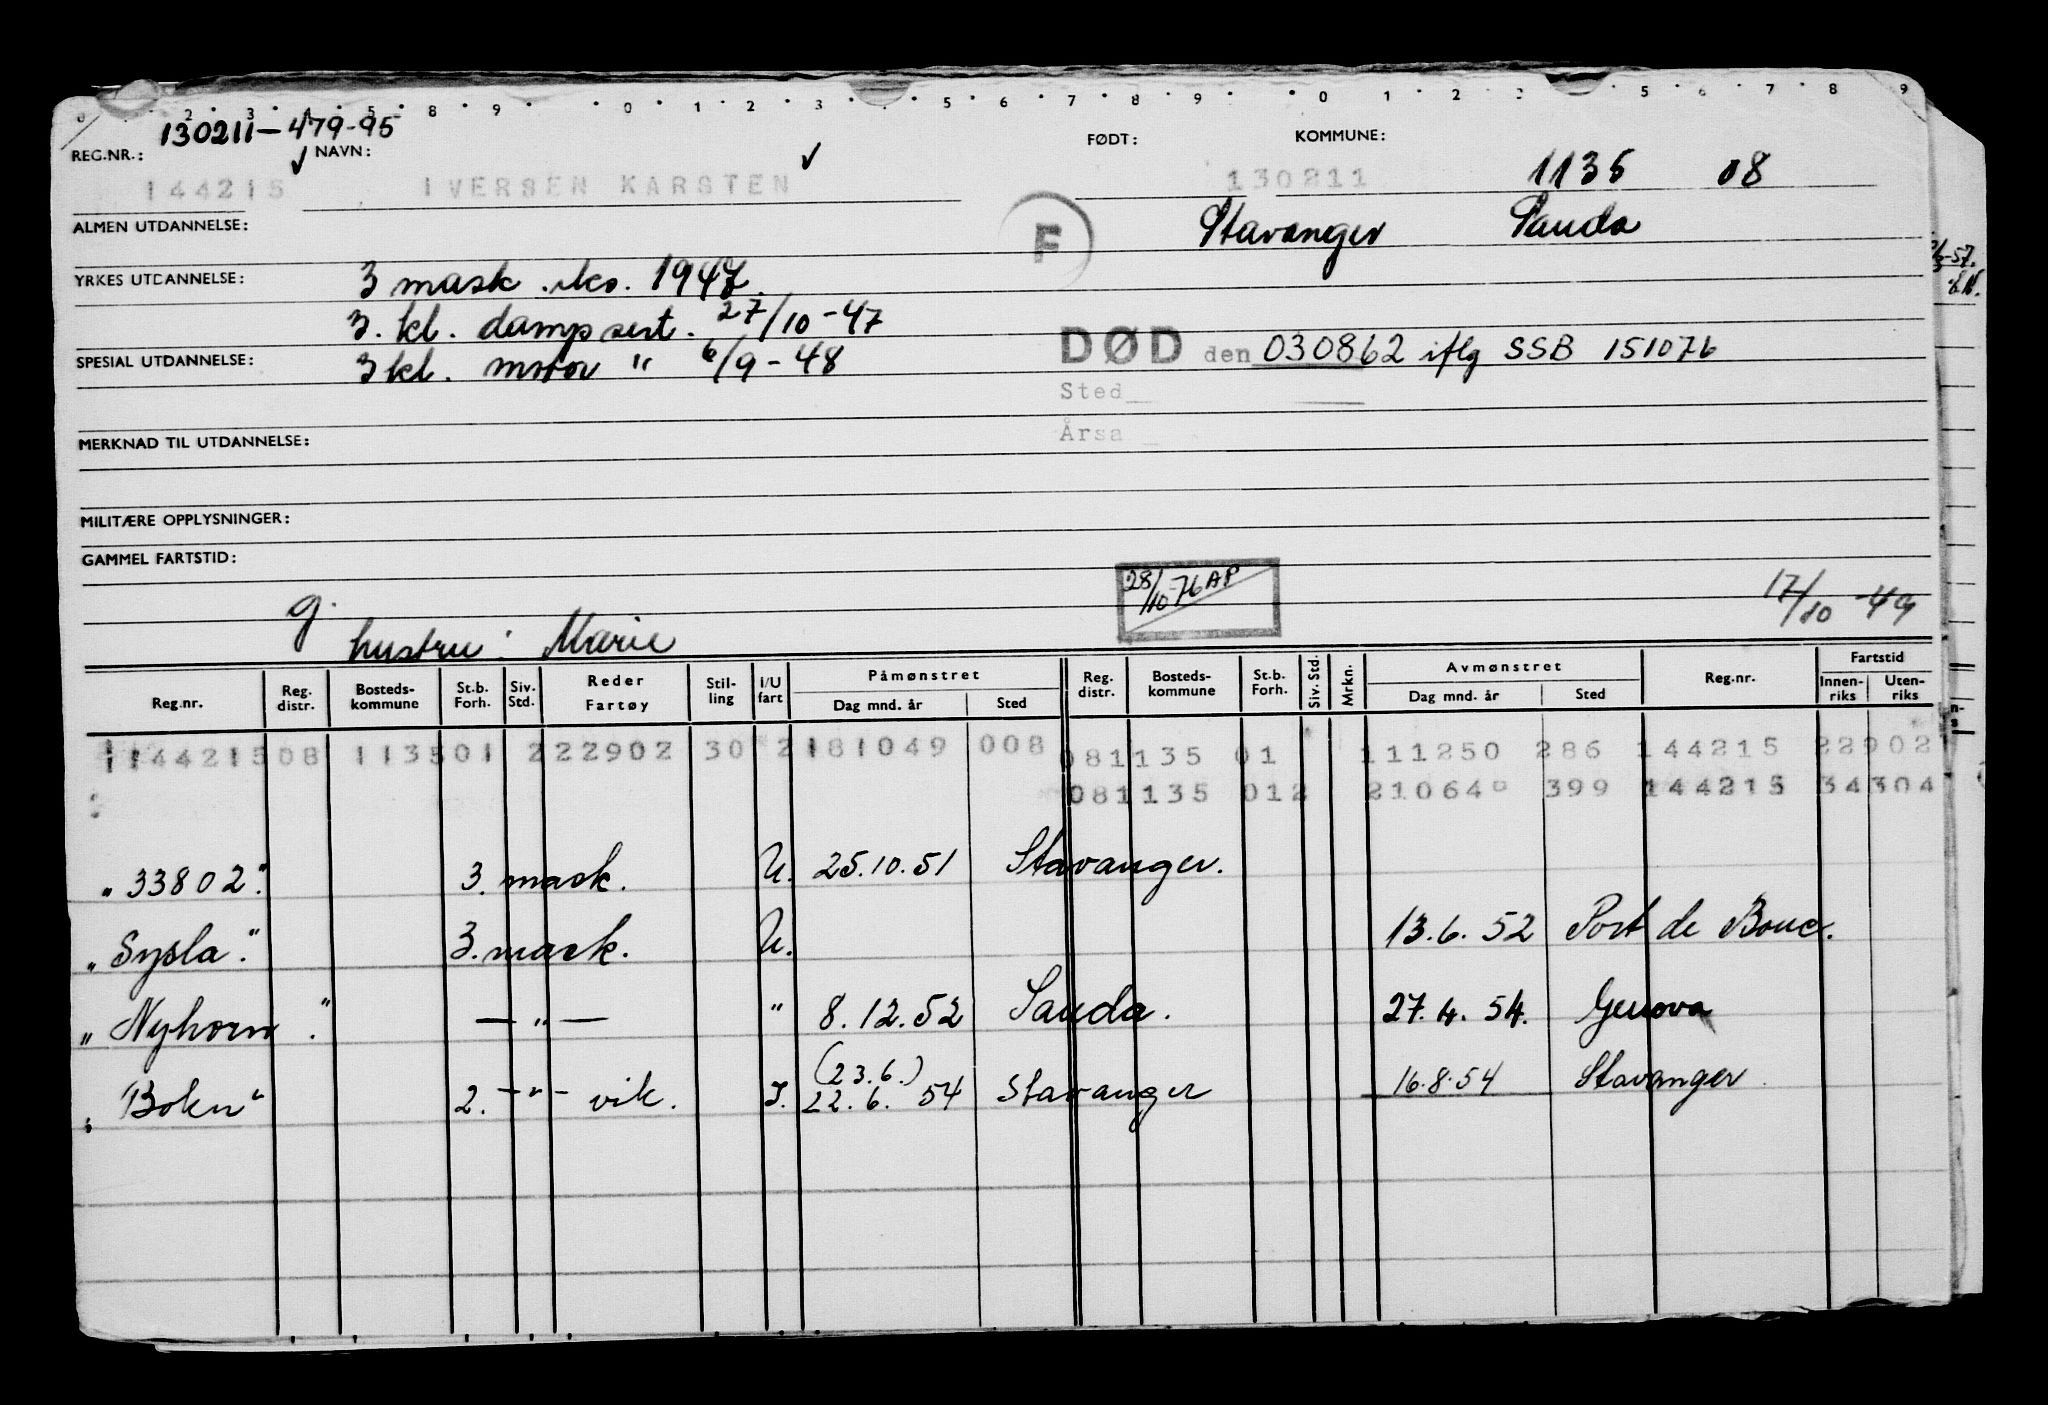 130211-479-95
REG.NR.: ✓ NAVN: ✓ FØDT: KOMMUNE:
144215 IVERSEN KARSTEN 130211 1135 08
ALMEN UTDANNELSE: F Stavanger Sauda
YRKES UTDANNELSE: 3 mask. 1947.
3. kl. damp sert. 27/10-47
SPESIAL UTDANNELSE: 3 kl. motor " 6/9-48
DØD den 030862 iflg SSB 151076
Sted
Årsa
MERKNAD TIL UTDANNELSE:
MILITÆRE OPPLYSNINGER:
GAMMEL FARTSTID:
28/10-76 AP
17/10-49
g.
hustru: Marie
Reg.nr. Reg. distr. Bosteds-kommune St.b. Forh. Siv. Std. Reder Fartøy Stil-ling I/U fart Påmønstret Dag mnd. år Sted Reg. distr. Bosteds-kommune St.b. Forh. Siv. Std. Mrkn. Avmønstret Dag mnd. år Sted Reg.nr. Fartstid Innen-riks Uten-riks
114421508 113501 222902 30 2 181049 008 081135 01 111250 286 144215 22902
081135 012 210640 399 144215 34304
"33802". 3. mask. U. 25.10.51 Stavanger.
"Sysla". 3. mask. U. 13.6.52 Port de Bouc.
"Nyhorn". — " — " 8.12.52 Sauda. 27.4.54. Genova
(23.6.)
"Bokn" 2. - " - vik. I. 22.6.54 Stavanger 16.8.54 Stavanger